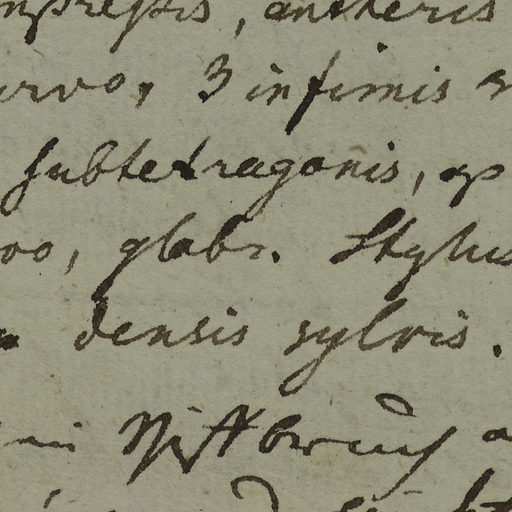 mpressis, antheris
urvo, 3 infimis
subtetragonis, ap
vo, glabr. Stylus
densis sylvis.
in